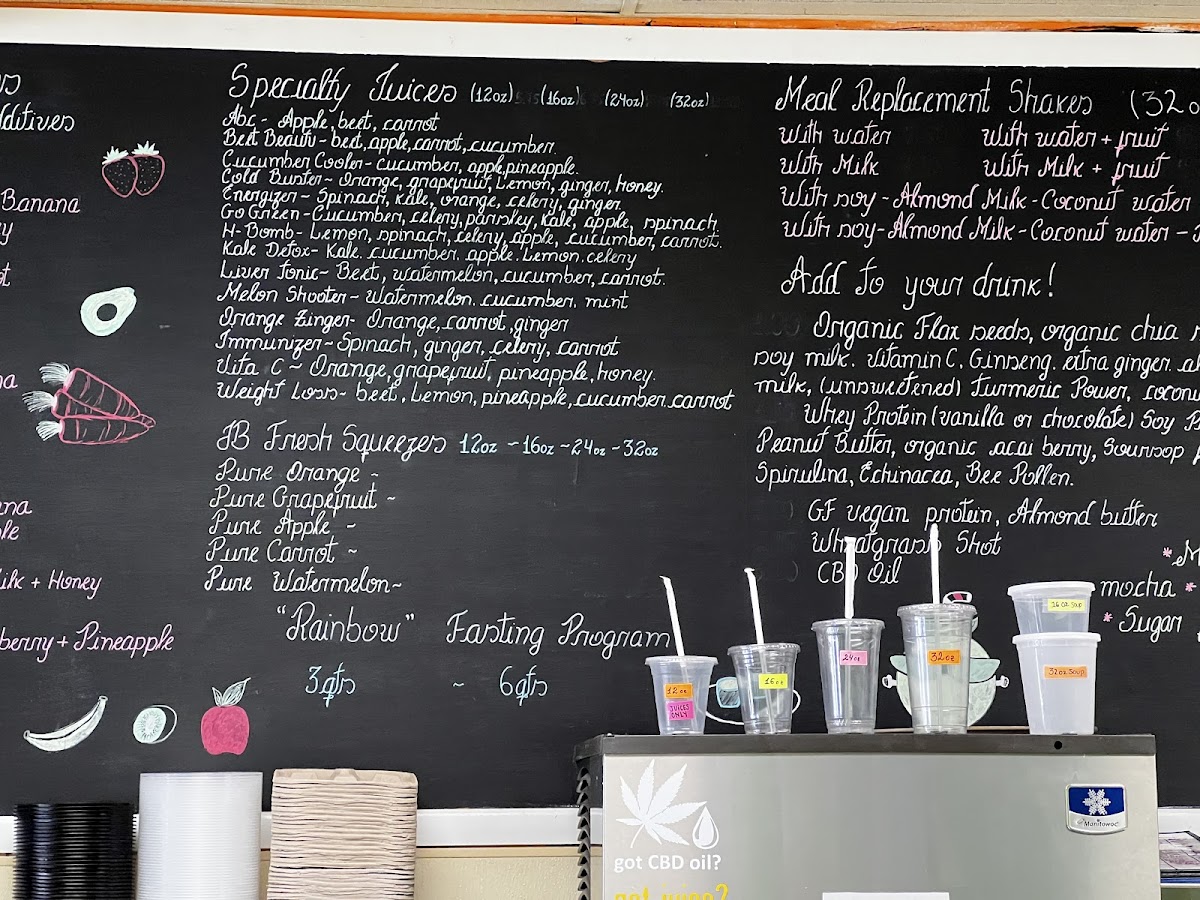 dditives
Banana
Milk + Honey
berry + Pineapple
Specialty Juices (12oz) (16oz) (24oz) (32oz)
Abc - Apple, beet, carrot
Beet Beauty - beet, apple, carrot, cucumber.
Cucumber Cooler - cucumber, apple, pineapple.
Cold Buster - Orange, grapefruit, Lemon, ginger, Honey.
Energizer - Spinach, kale, orange, celery, ginger
Go Green - Cucumber, celery, parsley, kale, apple, spinach
H-Bomb - Lemon, spinach, celery, apple, cucumber, carrot.
Kale Detox - Kale. cucumber. apple. Lemon. celery
Liver Tonic - Beet, watermelon, cucumber, carrot.
Melon Shooter - Watermelon. cucumber, mint
Orange Zinger - Orange, carrot, ginger
Immunizer - Spinach, ginger, celery, carrot
Vita C - Orange, grapefruit, pineapple, honey.
Weight Loss - beet, Lemon, pineapple, cucumber carrot
JB Fresh Squeezes 12oz - 16oz - 24oz - 32oz
Pure Orange -
Pure Grapefruit -
Pure Apple -
Pure Carrot -
Pure Watermelon -
"Rainbow" Fasting Program
3qts - 6qts
Meal Replacement Shakes (32o
With water With water + fruit
With Milk With Milk + fruit
With soy - Almond Milk - Coconut water
With soy - Almond Milk - Coconut water -
Add to your drink!
Organic Flax seeds, organic chia
soy milk. Vitamin C, Ginseng. extra ginger.
milk, (unsweetened) Turmeric Power,
Whey Protein (vanilla or chocolate) Soy
Peanut Butter, organic acai berry, Soursop
Spirulina, Echinacea, Bee Pollen.
GF vegan protein, Almond butter
Wheatgrass Shot
CBD Oil
mocha *
* Sugar
12oz
JUICES ONLY
16oz
24oz
32oz
16 oz soup
32oz soup
Manitowoc
got CBD oil?